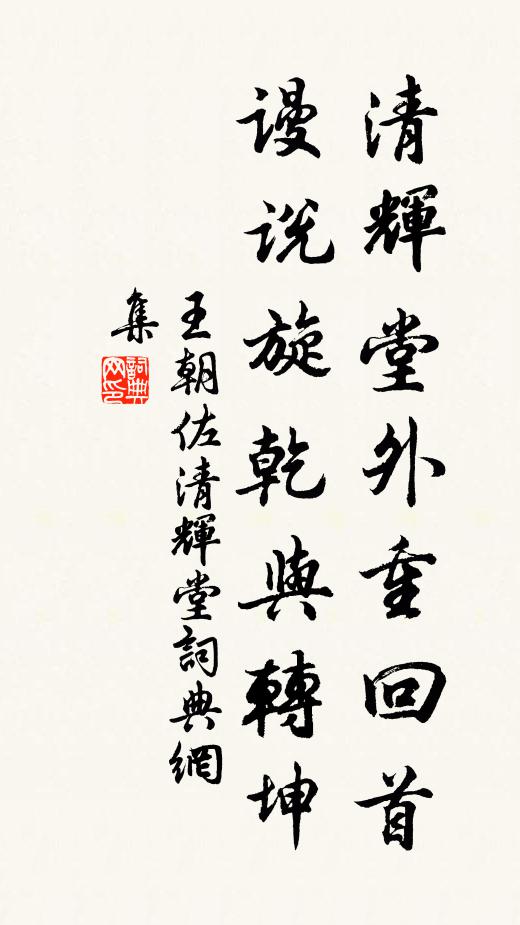 清輝堂外重回首
謾说旋乾與轉坤
王朝佐清輝堂詞典網
集
詞典
网印